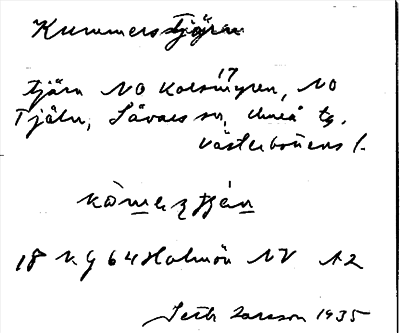 Kummerstjärn
17
tjärn NO Kolsmyren, NO
Tjäln, Sävars sn, Umeå tg.
Västerbottens l.
kòmeʂtjɑ́n
18 Kg 64 Holmön NV A2
Seth Larsson 1935